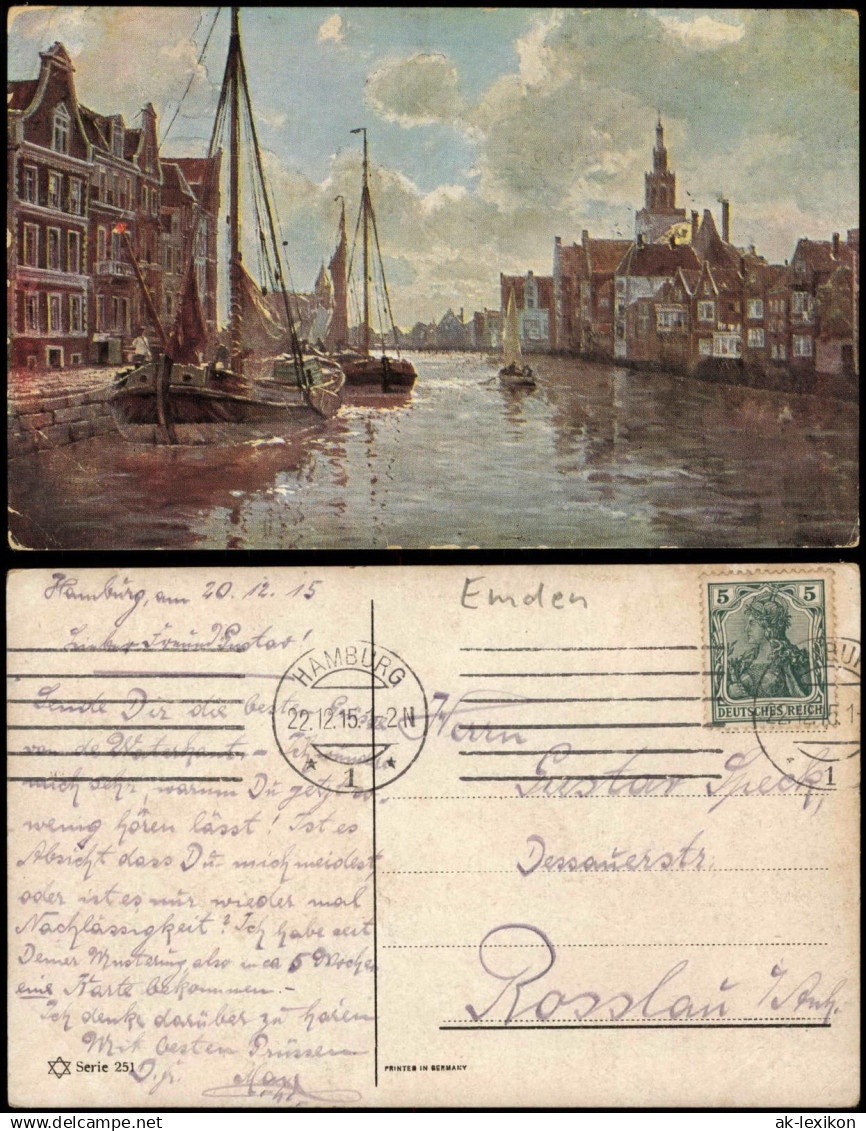 Hamburg, am 20.12.15
Lieber Freund Gustav!
Sende Dir die besten Grüsse
von de Waterkant. – Ich
mich sehr, warum Du jetzt so
wenig hören lässt! Ist es
Absicht dass Du mich meidest
oder ist es nur wieder mal
Nachlässigkeit? Ich habe seit
Deiner Musterung also in ca 5 Wochen
eine Karte bekommen. –
Ich denke darüber zu hören
Mit besten Grüssen
D. fr.
Serie 251
Emden
5 5
DEUTSCHES REICH
HAMBURG
22.12.15. 2 N
* 1 *
Herrn
Gustav Speck,
Dessauerstr.
Rosslau i/Anh.
PRINTED IN GERMANY
ak-lexikon.com